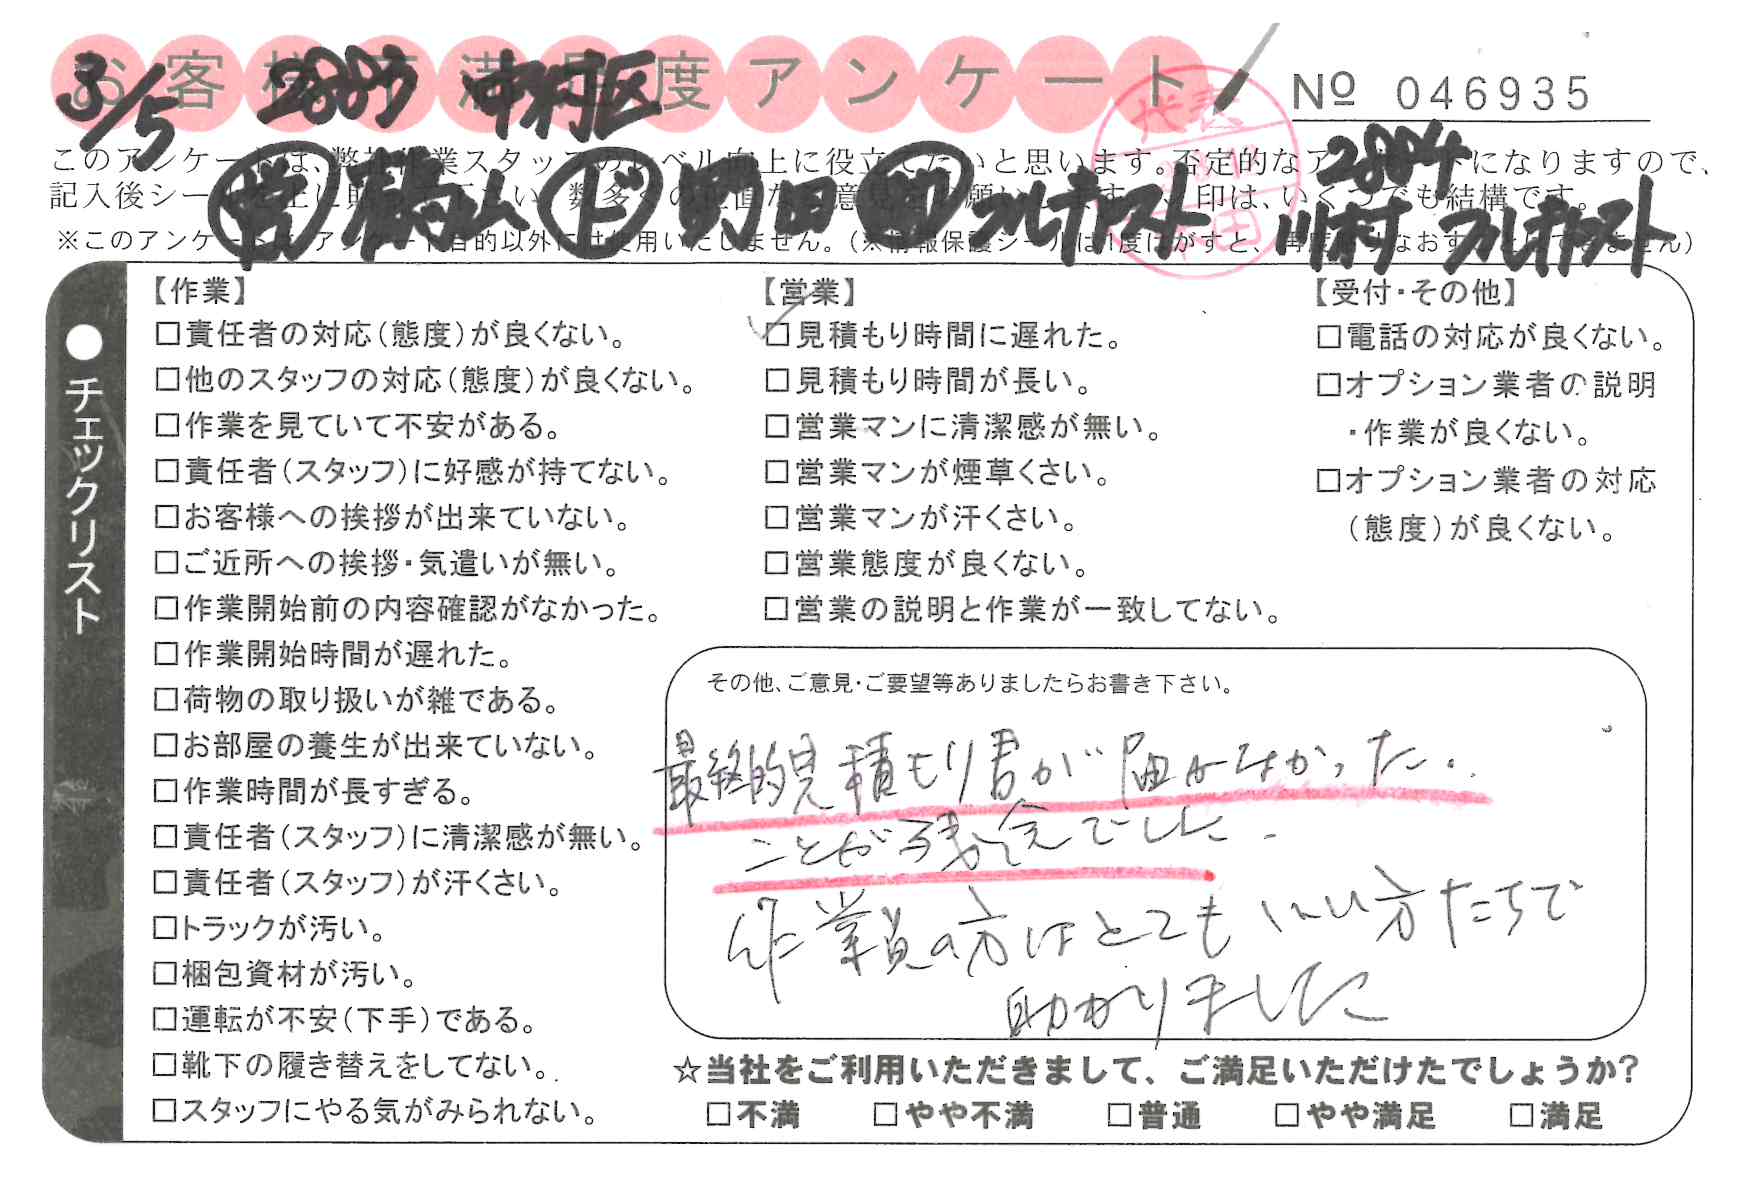 お客様不満足度アンケート
3/5 2885 中村区
代表
Nº 046935
このアンケートは、弊社作業スタッフのレベル向上に役立てたいと思います。否定的なアンケートになりますので、
記入後シールを上に貼って下さい。数多くの正直なご意見をお願いします。✓印は、いくつでも結構です。
※このアンケートは、アンケート目的以外には使用いたしません。（※情報保護シールは1度はがすと、再度貼りなおすことはできません）
2804
営 ド 町田 助 フルキャスト
川村 フルキャスト
●チェックリスト
【作業】
□責任者の対応（態度）が良くない。
□他のスタッフの対応（態度）が良くない。
□作業を見ていて不安がある。
□責任者（スタッフ）に好感が持てない。
□お客様への挨拶が出来ていない。
□ご近所への挨拶・気遣いが無い。
□作業開始前の内容確認がなかった。
□作業開始時間が遅れた。
□荷物の取り扱いが雑である。
□お部屋の養生が出来ていない。
□作業時間が長すぎる。
□責任者（スタッフ）に清潔感が無い。
□責任者（スタッフ）が汗くさい。
□トラックが汚い。
□梱包資材が汚い。
□運転が不安（下手）である。
□靴下の履き替えをしてない。
□スタッフにやる気がみられない。
【営業】
☑見積もり時間に遅れた。
□見積もり時間が長い。
□営業マンに清潔感が無い。
□営業マンが煙草くさい。
□営業マンが汗くさい。
□営業態度が良くない。
□営業の説明と作業が一致してない。
【受付・その他】
□電話の対応が良くない。
□オプション業者の説明
・作業が良くない。
□オプション業者の対応
（態度）が良くない。
その他、ご意見・ご要望等ありましたらお書き下さい。
最終的見積もり書が届かなかった.
ことが残念でした.
作業員の方はとてもいい方たちで
助かりました
☆当社をご利用いただきまして、ご満足いただけたでしょうか?
□不満 □やや不満 □普通 □やや満足 □満足